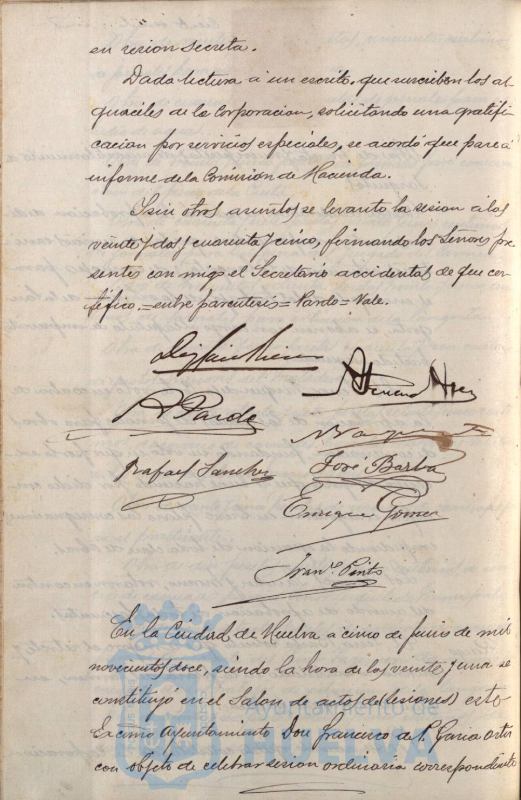 en sesion secreta.
Dada lectura a un escrito, que suscriben los al-
guaciles de la Corporacion, solicitando una gratifi-
cacion por servicios especiales, se acordó que pase a
informe de la Comision de Hacienda.
Y sin otros asuntos se levantó la sesion a las
veinte y dos y cuarenta y cinco, firmando los Señores pre-
sentes con migo el Secretario accidental de que cer-
tifico.=entre parentesis=Pardo=Vale.
A Pardo
N Vazquez
Rafael Sanchez
José Barba
Enrique Gomez
Franco. Pinto
En la Ciudad de Huelva a cinco de Junio de mil
novecientos doce, siendo la hora de las veinte y una se
constituyó en el Salon de actos de (sesiones) esto
Excmo Ayuntamiento Don Francisco de P. Garcia Ortiz
con objeto de celebrar sesion ordinaria correspondiente
Ayuntamiento de
HUELVA